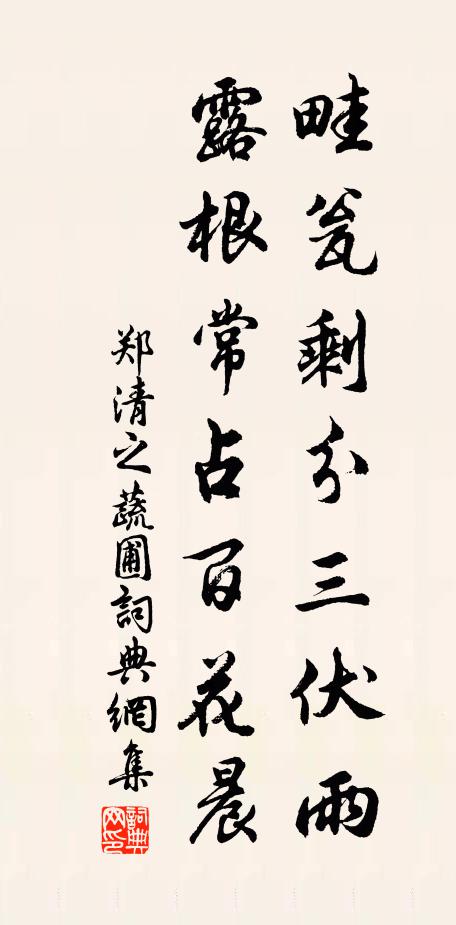 畦瓮剩分三伏雨
露根常占百花晨
郑清之蔬圃詞典網集
詞典網印